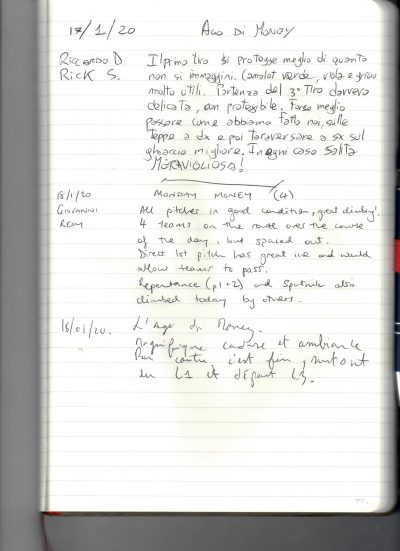 17/1/20 Ago Di Money
Riccardo D. Il primo tiro si protegge meglio di quanto
Rick S. non si immagini. Camalot verde, viola e grigio
molto utili. Partenza del 3° Tiro davvero
delicata, non protegibile. Forse meglio
passare come abbiamo fatto noi, sulle
Teppe a dx e poi Taraversare a sx sul
ghiaccio migliore. In ogni caso Salita
MERAVIGLIOSA!
18/1/20 MONDAY MONEY (4)
GIOVANNI All pitches in good condition, great climbing!
REMY 4 teams on the route over the course
of the day, but spaced out.
Direct 1st pitch has great ice and would
allow teams to pass.
Repentance (p1+2) and Sputnik also
climbed today by others.
18/01/20. L'Ago di Money.
Magnifique cadre et ambiance
Par contre c'est fin, surtout
en L1 et départ L3.